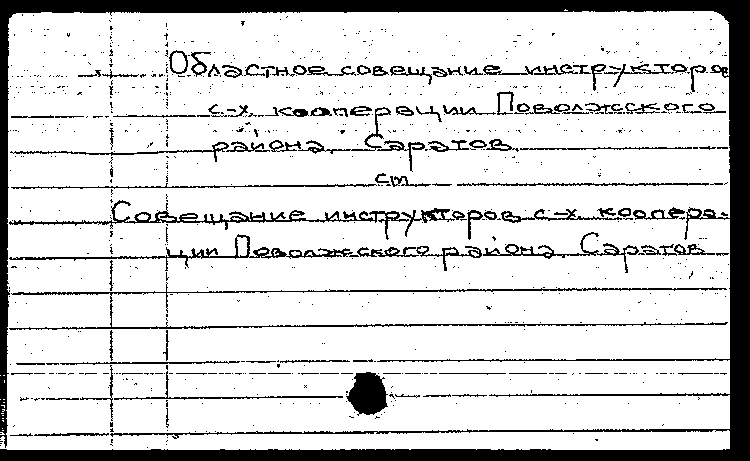 Областное совещание инструкторов
с-х. кооперации Поволжского
района. Саратов.
см
Совещание инструкторов с-х коопера-
ции Поволжского района. Саратов